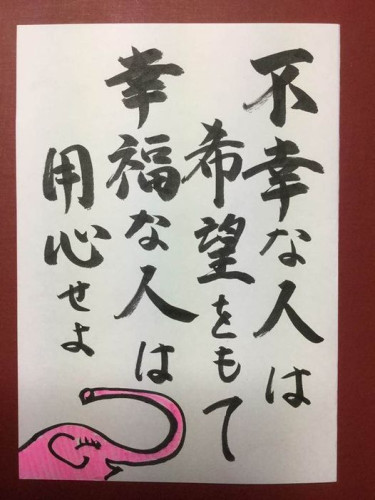 不幸な人は
希望をもて
幸福な人は
用心せよ